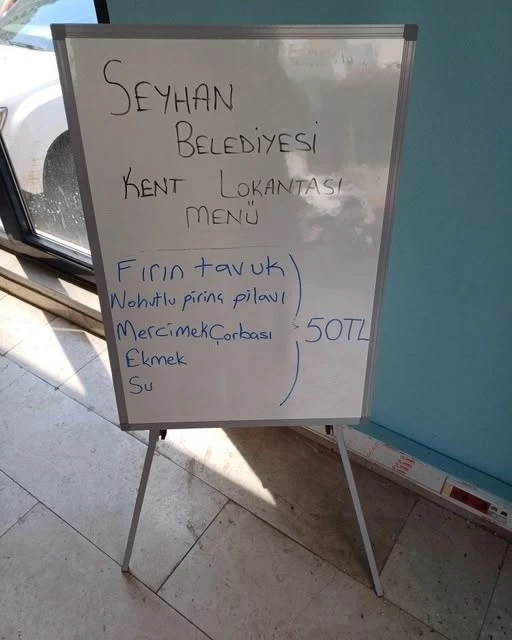 SEYHAN
BELEDİYESİ
KENT LOKANTASI
MENÜ
Fırın tavuk
Nohutlu pirinç pilavı
Mercimek Çorbası
50TL
Ekmek
Su